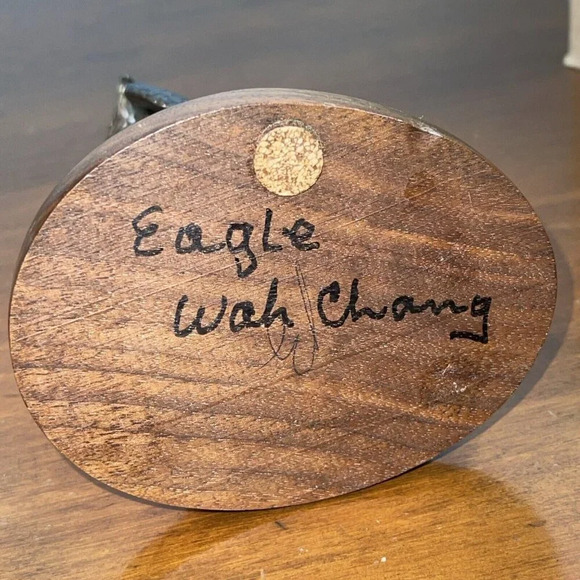 Eagle
Wah Chang